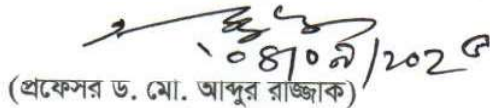 ০৪/০৯/২০২৫
(প্রফেসর ড. মো. আব্দুর রাজ্জাক)